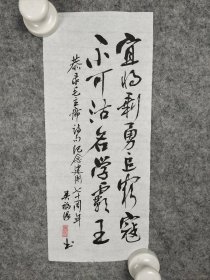 宜将剩勇追穷寇
不可沽名学霸王
恭录毛主席诗句纪念建国七十周年
书